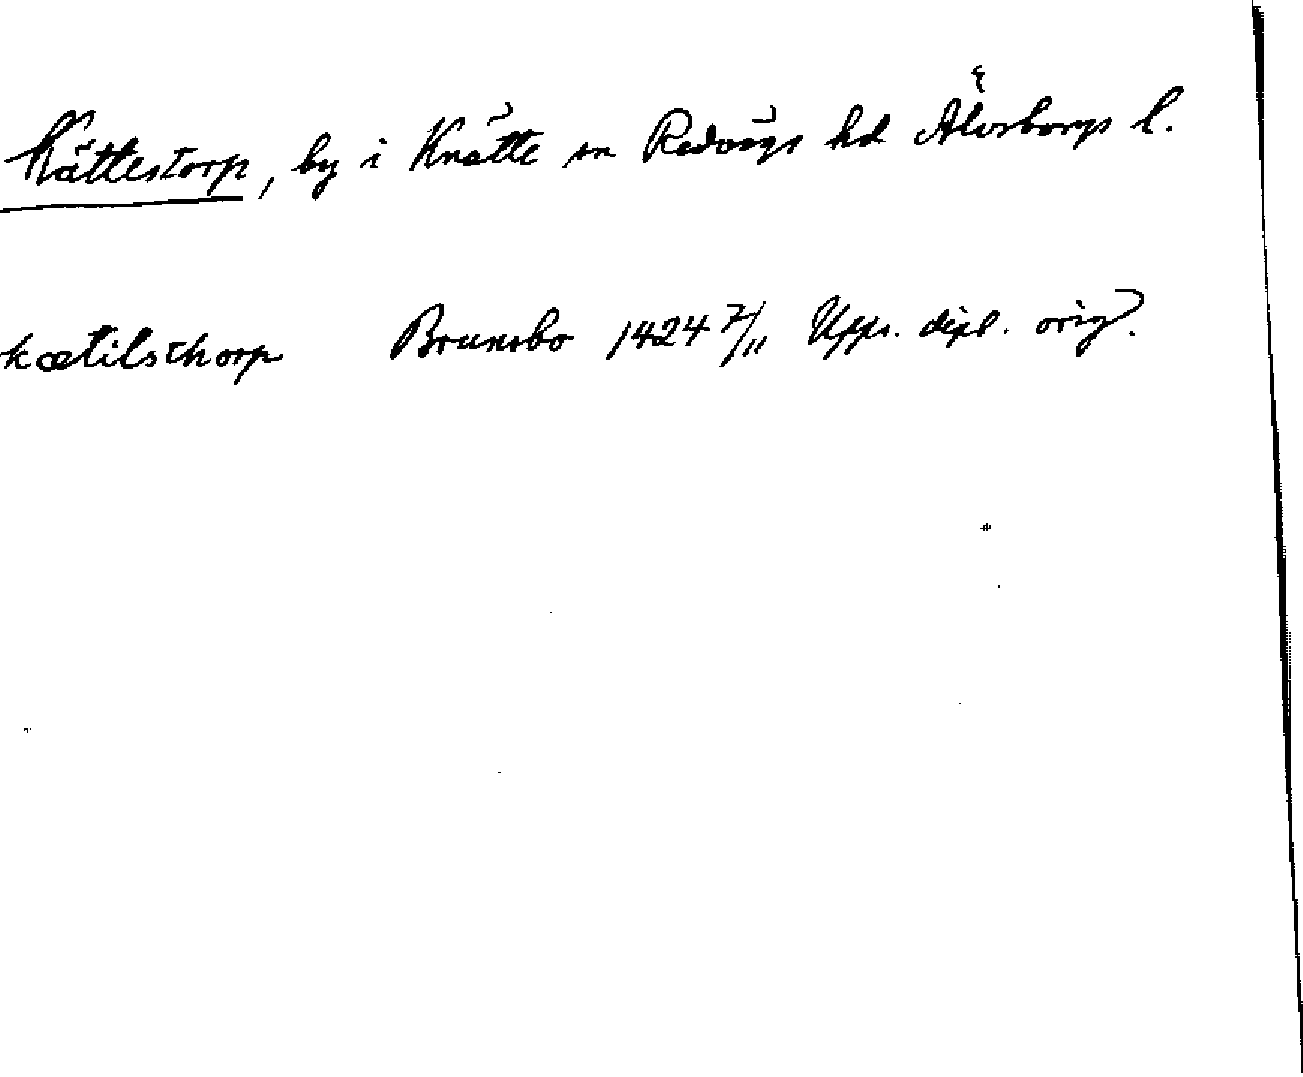 Kättestorp, by i Knätte sn Redvägs hd Älvsborgs l.
kætilsthorp Brunsbo 1424 7/11 Upps. dipl. orig.